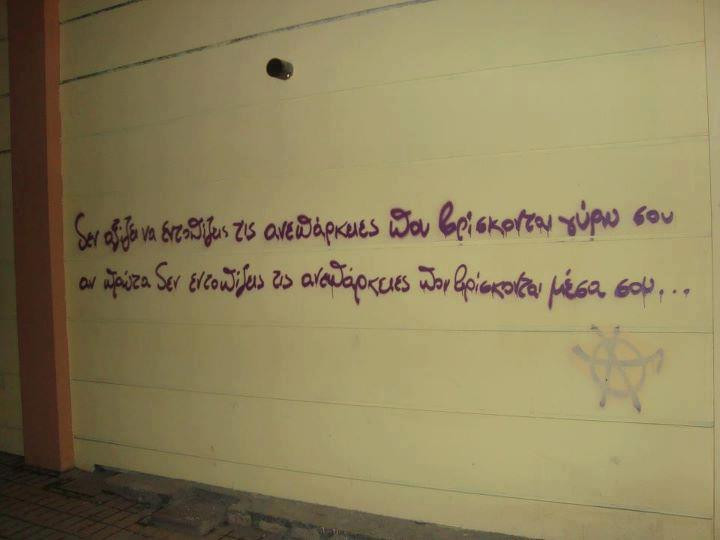 δεν αξίζει να εντοπίζεις τις ανεπάρκειες που βρίσκονται γύρω σου
αν πρώτα δεν εντοπίζεις τις ανεπάρκειες που βρίσκονται μέσα σου...